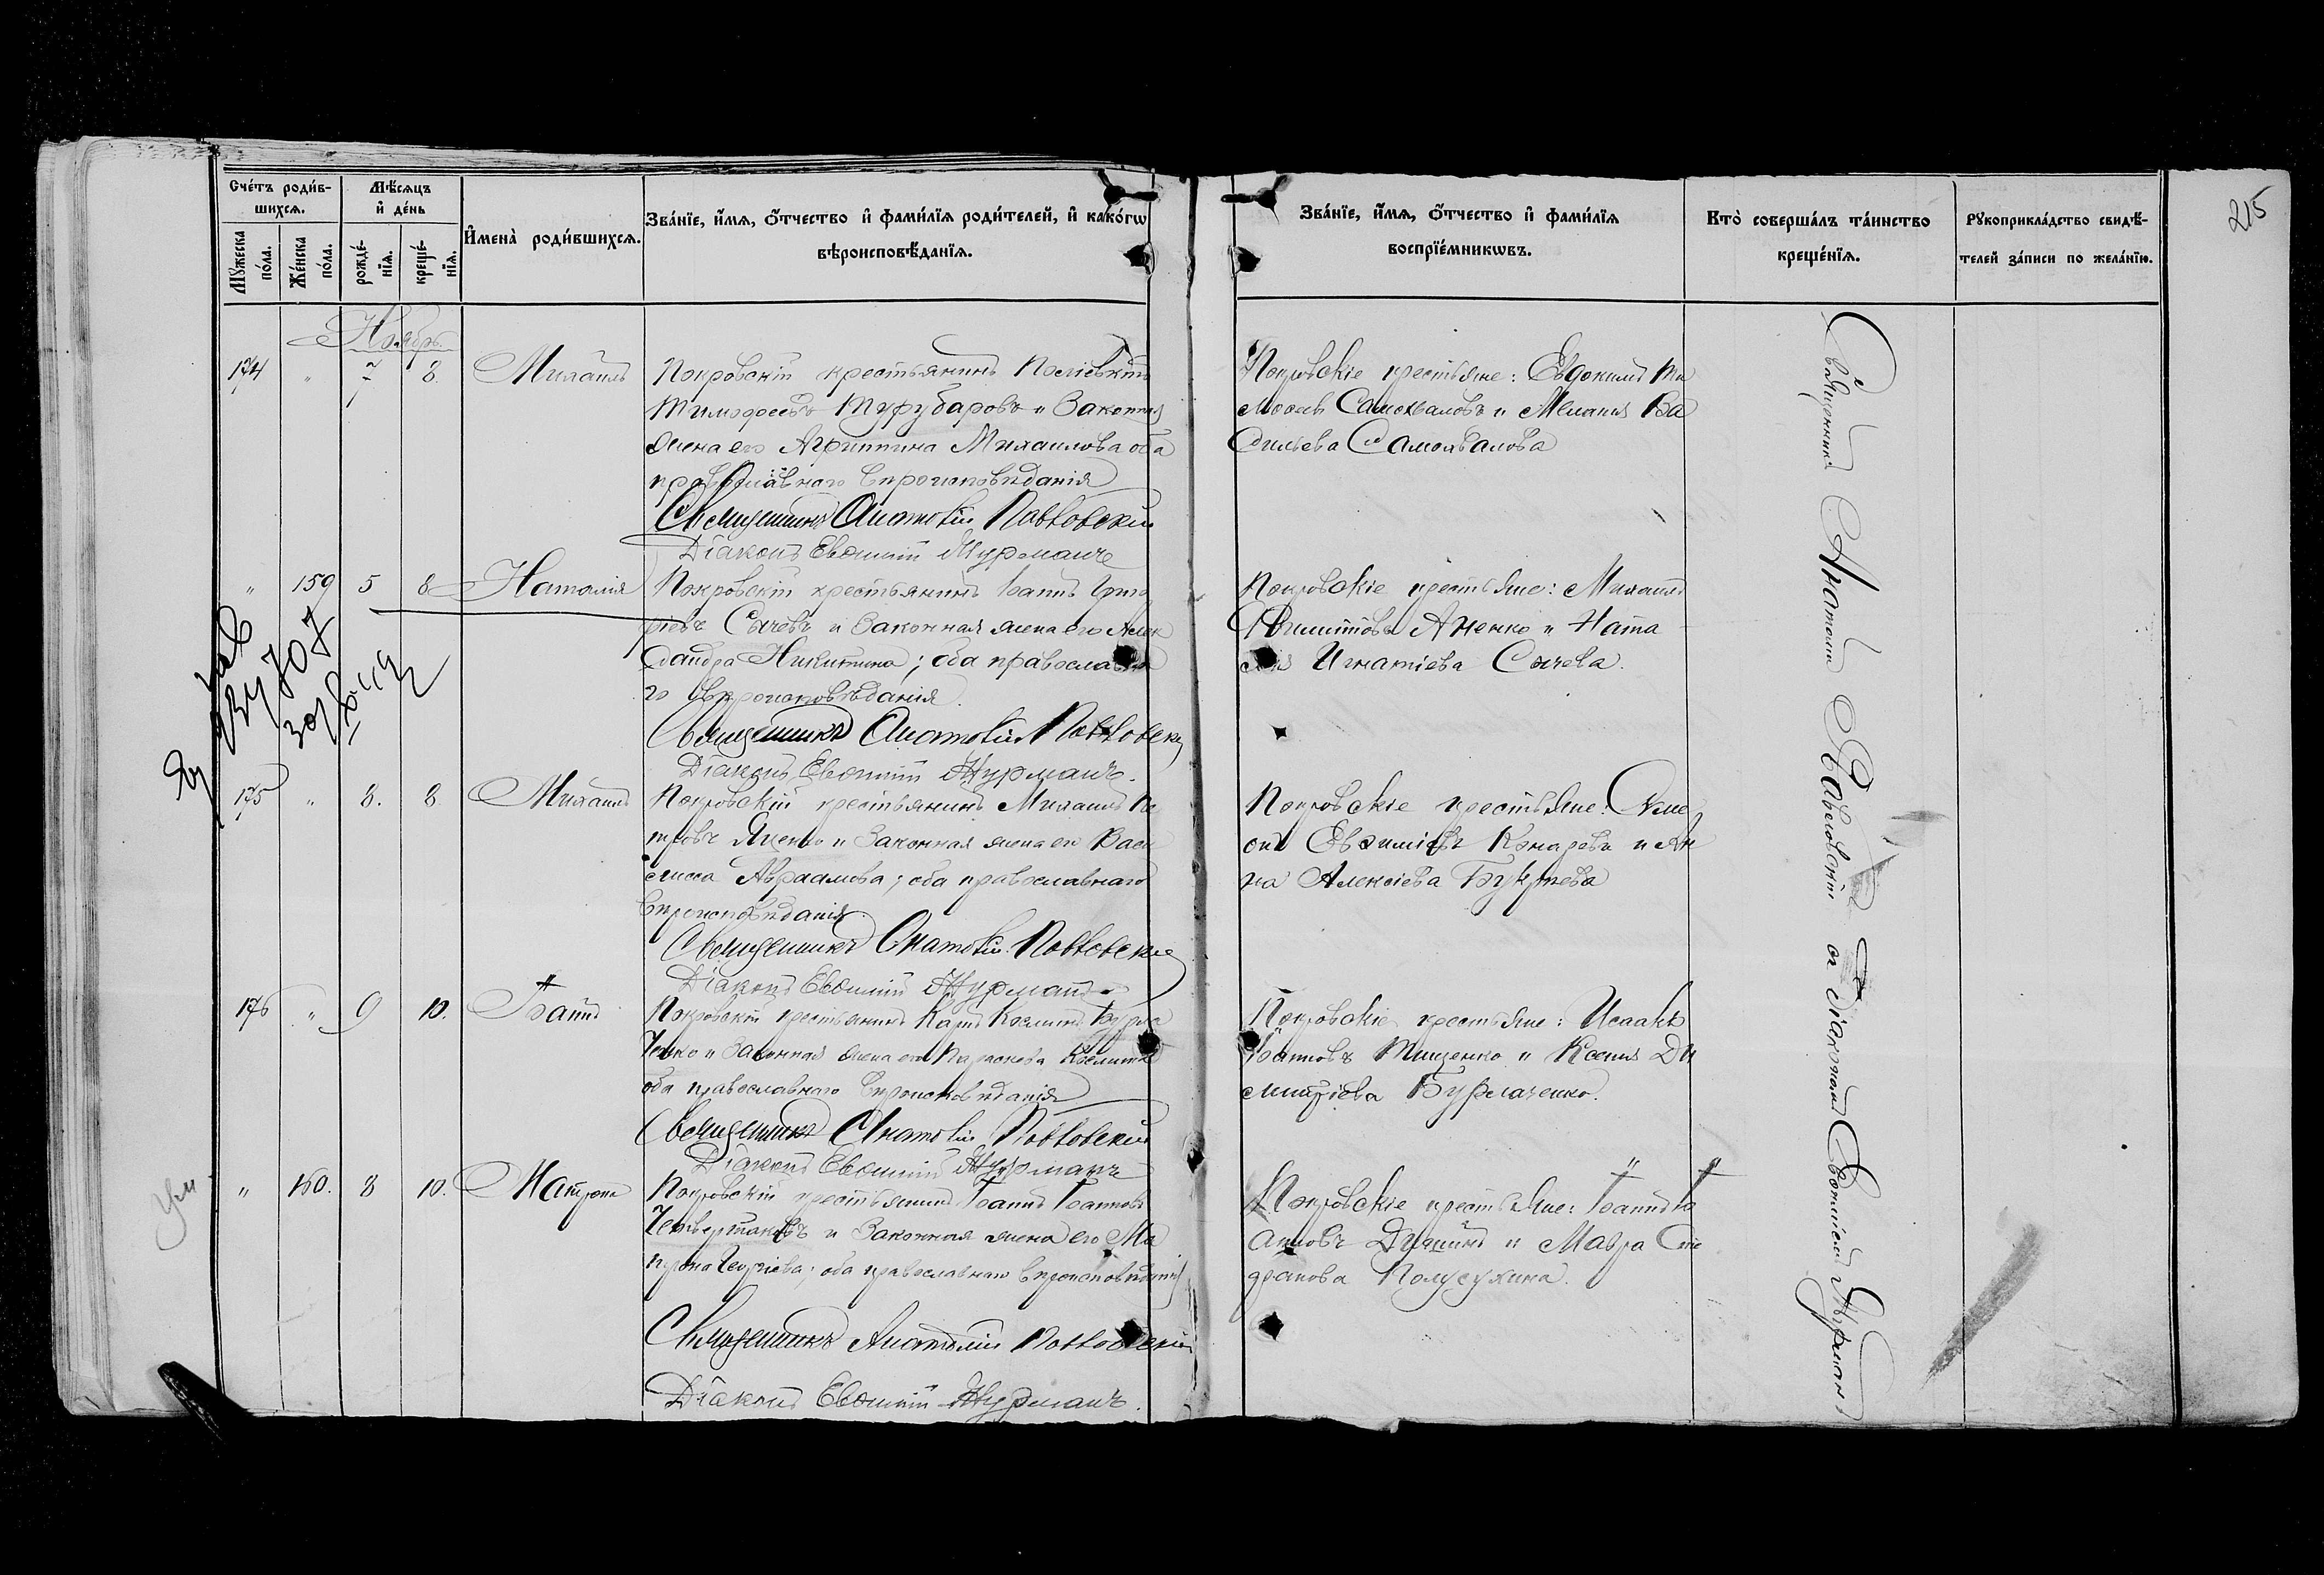 215
Сче́тъ роди́в-
шихсѧ.
Мѣ́сѧцъ
и҆ де́нь
И҆мена̀ роди́вшихсѧ.
Зва́нїе, и҆́мѧ, ѻ҆́тчество и҆ фами́лїѧ роди́телей, и҆ како́гѡ
вѣроисповѣ́данїѧ.
Зва́нїе, и҆́мѧ, ѻ҆́тчество и҆ фами́лїѧ
воспрїе́мникѡвъ.
Кто̀ соверша́лъ та́инство
креще́нїѧ.
Рꙋкоприкла́дство свидѣ́-
телей за́писи по жела́нїю.
Мꙋ́жеска
по́ла.
Же́нска
по́ла.
рожде́-
нїѧ.
креще́-
нїѧ.
Ноябрь.
174 " 7 8. Михаилъ
Покровскій крестьянинъ
Тимофеевъ Турубаровъ и Законная
жена его Агриппина Михаилова оба
православнаго вѣроисповѣданія
Священникъ Анатолій Павловскій
Діаконъ Евѳимій Журманъ
Покровскіе крестьяне: Евдокимъ Ти
моѳеевъ Самохваловъ и Меланія Ва
сильева Самохвалова
" 159 5 8 Наталія
Покровскій крестьянинъ Іоаннъ Григо
ріевъ Сычевъ и Законная жена его Алек
сандра Никитина; оба православна
го вѣроисповѣданія.
Священникъ Анатолій Павловскій
Діаконъ Евѳимій Журманъ.
Покровскіе крестьяне: Михаилъ
и Ната
лія Игнатіева Сычева.
175 " 8. 8 Михаилъ
Покровскій крестьянинъ Михаилъ Пе
тровъ Яценко и Законная жена его Васи
лисса Авраамова; оба православнаго
вѣроисповѣданія.
Священникъ Анатолій Павловскій
Діаконъ Евѳимій Журманъ
Покровскіе крестьяне: Симе
онъ Евѳиміевъ Конаревъ и Ан
на Алексіева
176 " 9 10. Іоаннъ
Покровскій крестьянинъ Карпъ Косминъ Бурла
ченко и Законная жена его Параскева
оба православнаго вѣроисповѣданія
Священникъ Анатолій Павловскій
Діаконъ Евѳимій Журманъ
Покровскіе крестьяне: Исаакъ
Іоанновъ Тищенко и Ксенія Ди
митріева Бурлаченко.
Ум.
" 160. 8 10. Матрона
Покровскій крестьянинъ Іоаннъ Іоанновъ
Четвертаковъ и Законная жена его Ма
трона Георгіева; оба православнаго вѣроисповѣданія
Священникъ Анатолій Павловскій
Діаконъ Евѳимій Журманъ.
Покровскіе крестьяне: Іоаннъ Іо
анновъ и Мавра Сте
фанова Полусухина.
Священникъ Анатолій Павловскій съ Діакономъ Евѳиміемъ Журманъ